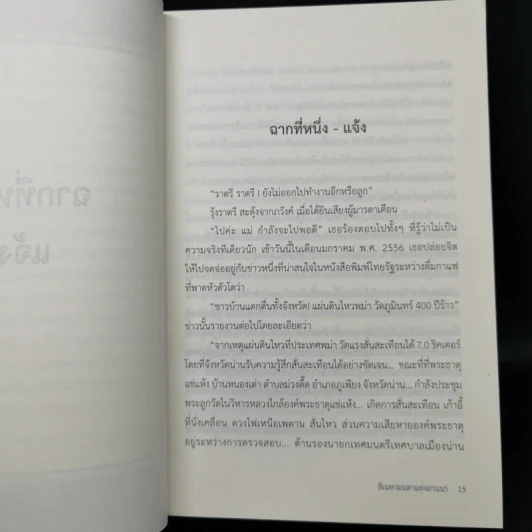 ฉากที่หนึ่ง - แจ้ง
“ราตรี ราตรี ! ยังไม่ออกไปทำงานอีกหรือลูก”
รุ้งราตรี สะดุ้งจากภวังค์ เมื่อได้ยินเสียงผู้มารดาเตือน
“ไปค่ะ แม่ กำลังจะไปพอดี” เธอร้องตอบไปทั้งๆ ที่รู้ว่าไม่เป็น
ความจริงทีเดียวนัก เช้าวันนี้ในเดือนมกราคม พ.ศ. 2556 เธอปล่อยจิต
ให้ไปจดจ่ออยู่กับข่าวหนึ่งที่น่าสนใจในหนังสือพิมพ์ไทยรัฐระหว่างดื่มกาแฟ
ที่พาดหัวตัวโตว่า
“ชาวบ้านแตกตื่นทั้งจังหวัด! แผ่นดินไหวพม่า วัดภูมินทร์ 400 ปีร้าว”
ข่าวนั้นรายงานต่อไปโดยละเอียดว่า
“จากเหตุแผ่นดินไหวที่ประเทศพม่า วัดแรงสั่นสะเทือนได้ 7.0 ริคเตอร์
โดยที่จังหวัดน่านรับความรู้สึกสั่นสะเทือนได้อย่างชัดเจน... ขณะที่ที่พระธาตุ
แช่แห้ง บ้านหนองเต่า ตำบลม่วงตึ๊ด อำเภอภูเพียง จังหวัดน่าน... กำลังประชุม
พระลูกวัดในวิหารหลวงใกล้องค์พระธาตุแช่แห้ง... เกิดการสั่นสะเทือน เก้าอี้
ที่นั่งเคลื่อน ดวงไฟเหนือเพดาน สั่นไหว ส่วนความเสียหายองค์พระธาตุ
อยู่ระหว่างการตรวจสอบ... ด้านรองนายกเทศมนตรีเทศบาลเมืองน่าน
สิเนหามนตาแห่งลานนา 15